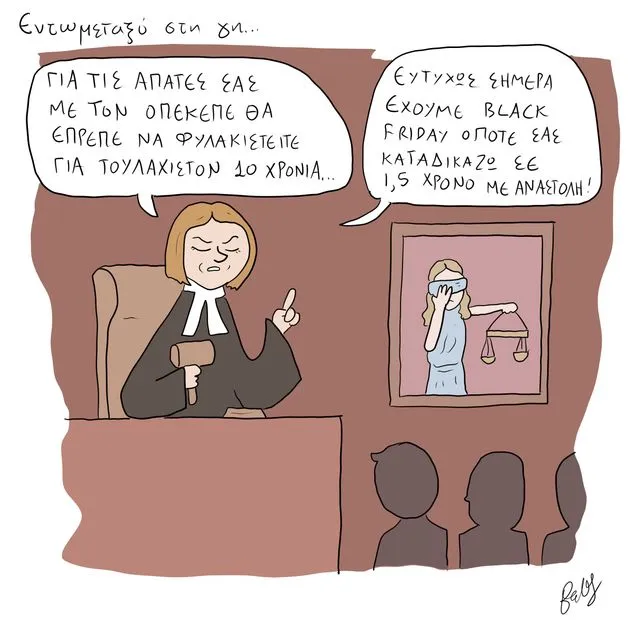 Εντωμεταξύ στη γη...
ΓΙΑ ΤΙΣ ΑΠΑΤΕΣ ΣΑΣ
ΜΕ ΤΟΝ ΟΠΕΚΕΠΕ ΘΑ
ΕΠΡΕΠΕ ΝΑ ΦΥΛΑΚΙΣΤΕΙΤΕ
ΓΙΑ ΤΟΥΛΑΧΙΣΤΟΝ 10 ΧΡΟΝΙΑ...
ΕΥΤΥΧΩΣ ΣΗΜΕΡΑ
ΕΧΟΥΜΕ BLACK
FRIDAY ΟΠΟΤΕ ΣΑΣ
ΚΑΤΑΔΙΚΑΖΩ ΣΕ
1,5 ΧΡΟΝΟ ΜΕ ΑΝΑΣΤΟΛΗ!